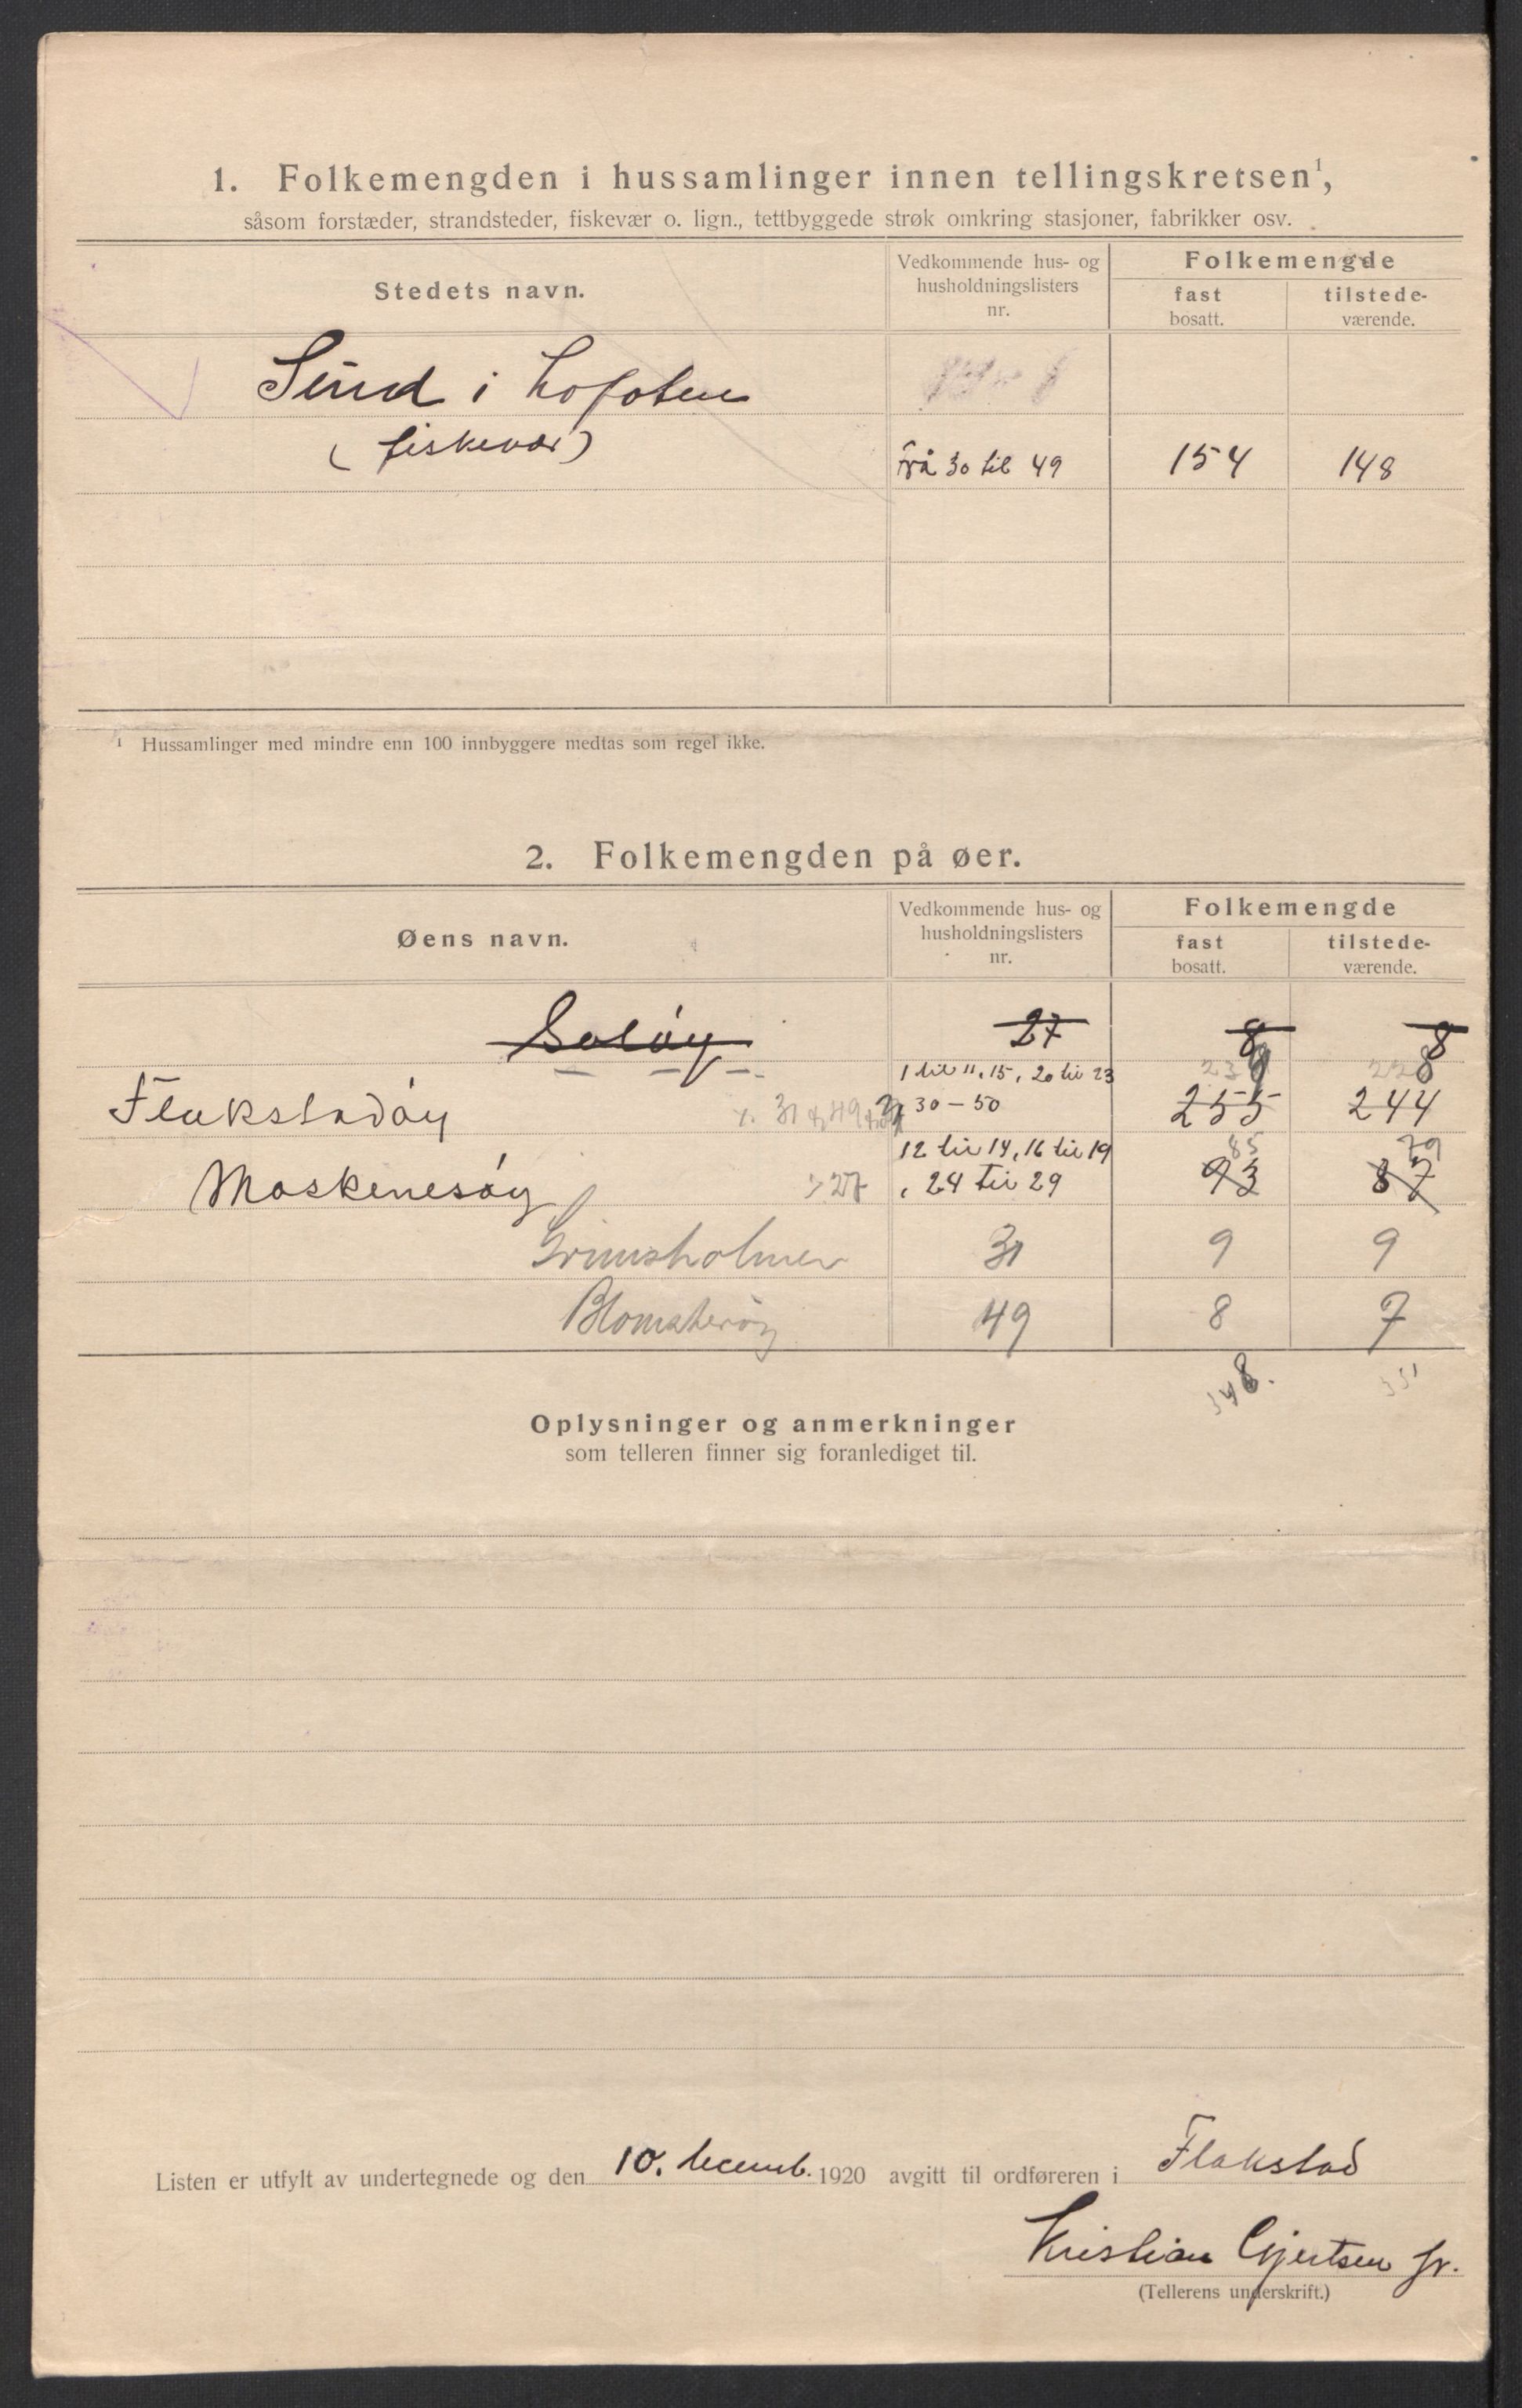 1. Folkemengden i hussamlinger innen tellingskretsen¹,
såsom forstæder, strandsteder, fiskevær o. lign., tettbyggede strøk omkring stasjoner, fabrikker osv.
Stedets navn.
Vedkommende hus- og husholdningslisters nr.
Folkemengde
fast bosatt.
tilstede-værende.
Sund i Lofoten
(fiskevær)
frå 30 til 49
154
148
¹ Hussamlinger med mindre enn 100 innbyggere medtas som regel ikke.
2. Folkemengden på øer.
Øens navn.
Vedkommende hus- og husholdningslisters nr.
Folkemengde
fast bosatt.
tilstede-værende.
27
8
8
1 til 11, 15, 20 til 23
228
Flakstadøy
30 – 50
255
244
12 til 14, 16 til 19
85
79
Moskenesøy
÷ 27
, 24 til 29
93
87
Grimsholmen
31
9
9
Blomsterøy
49
8
7
348.
Oplysninger og anmerkninger
som telleren finner sig foranlediget til.
Listen er utfylt av undertegnede og den 10. decemb. 1920 avgitt til ordføreren i Flakstad
Kristian Gjertsen jr.
(Tellerens underskrift.)